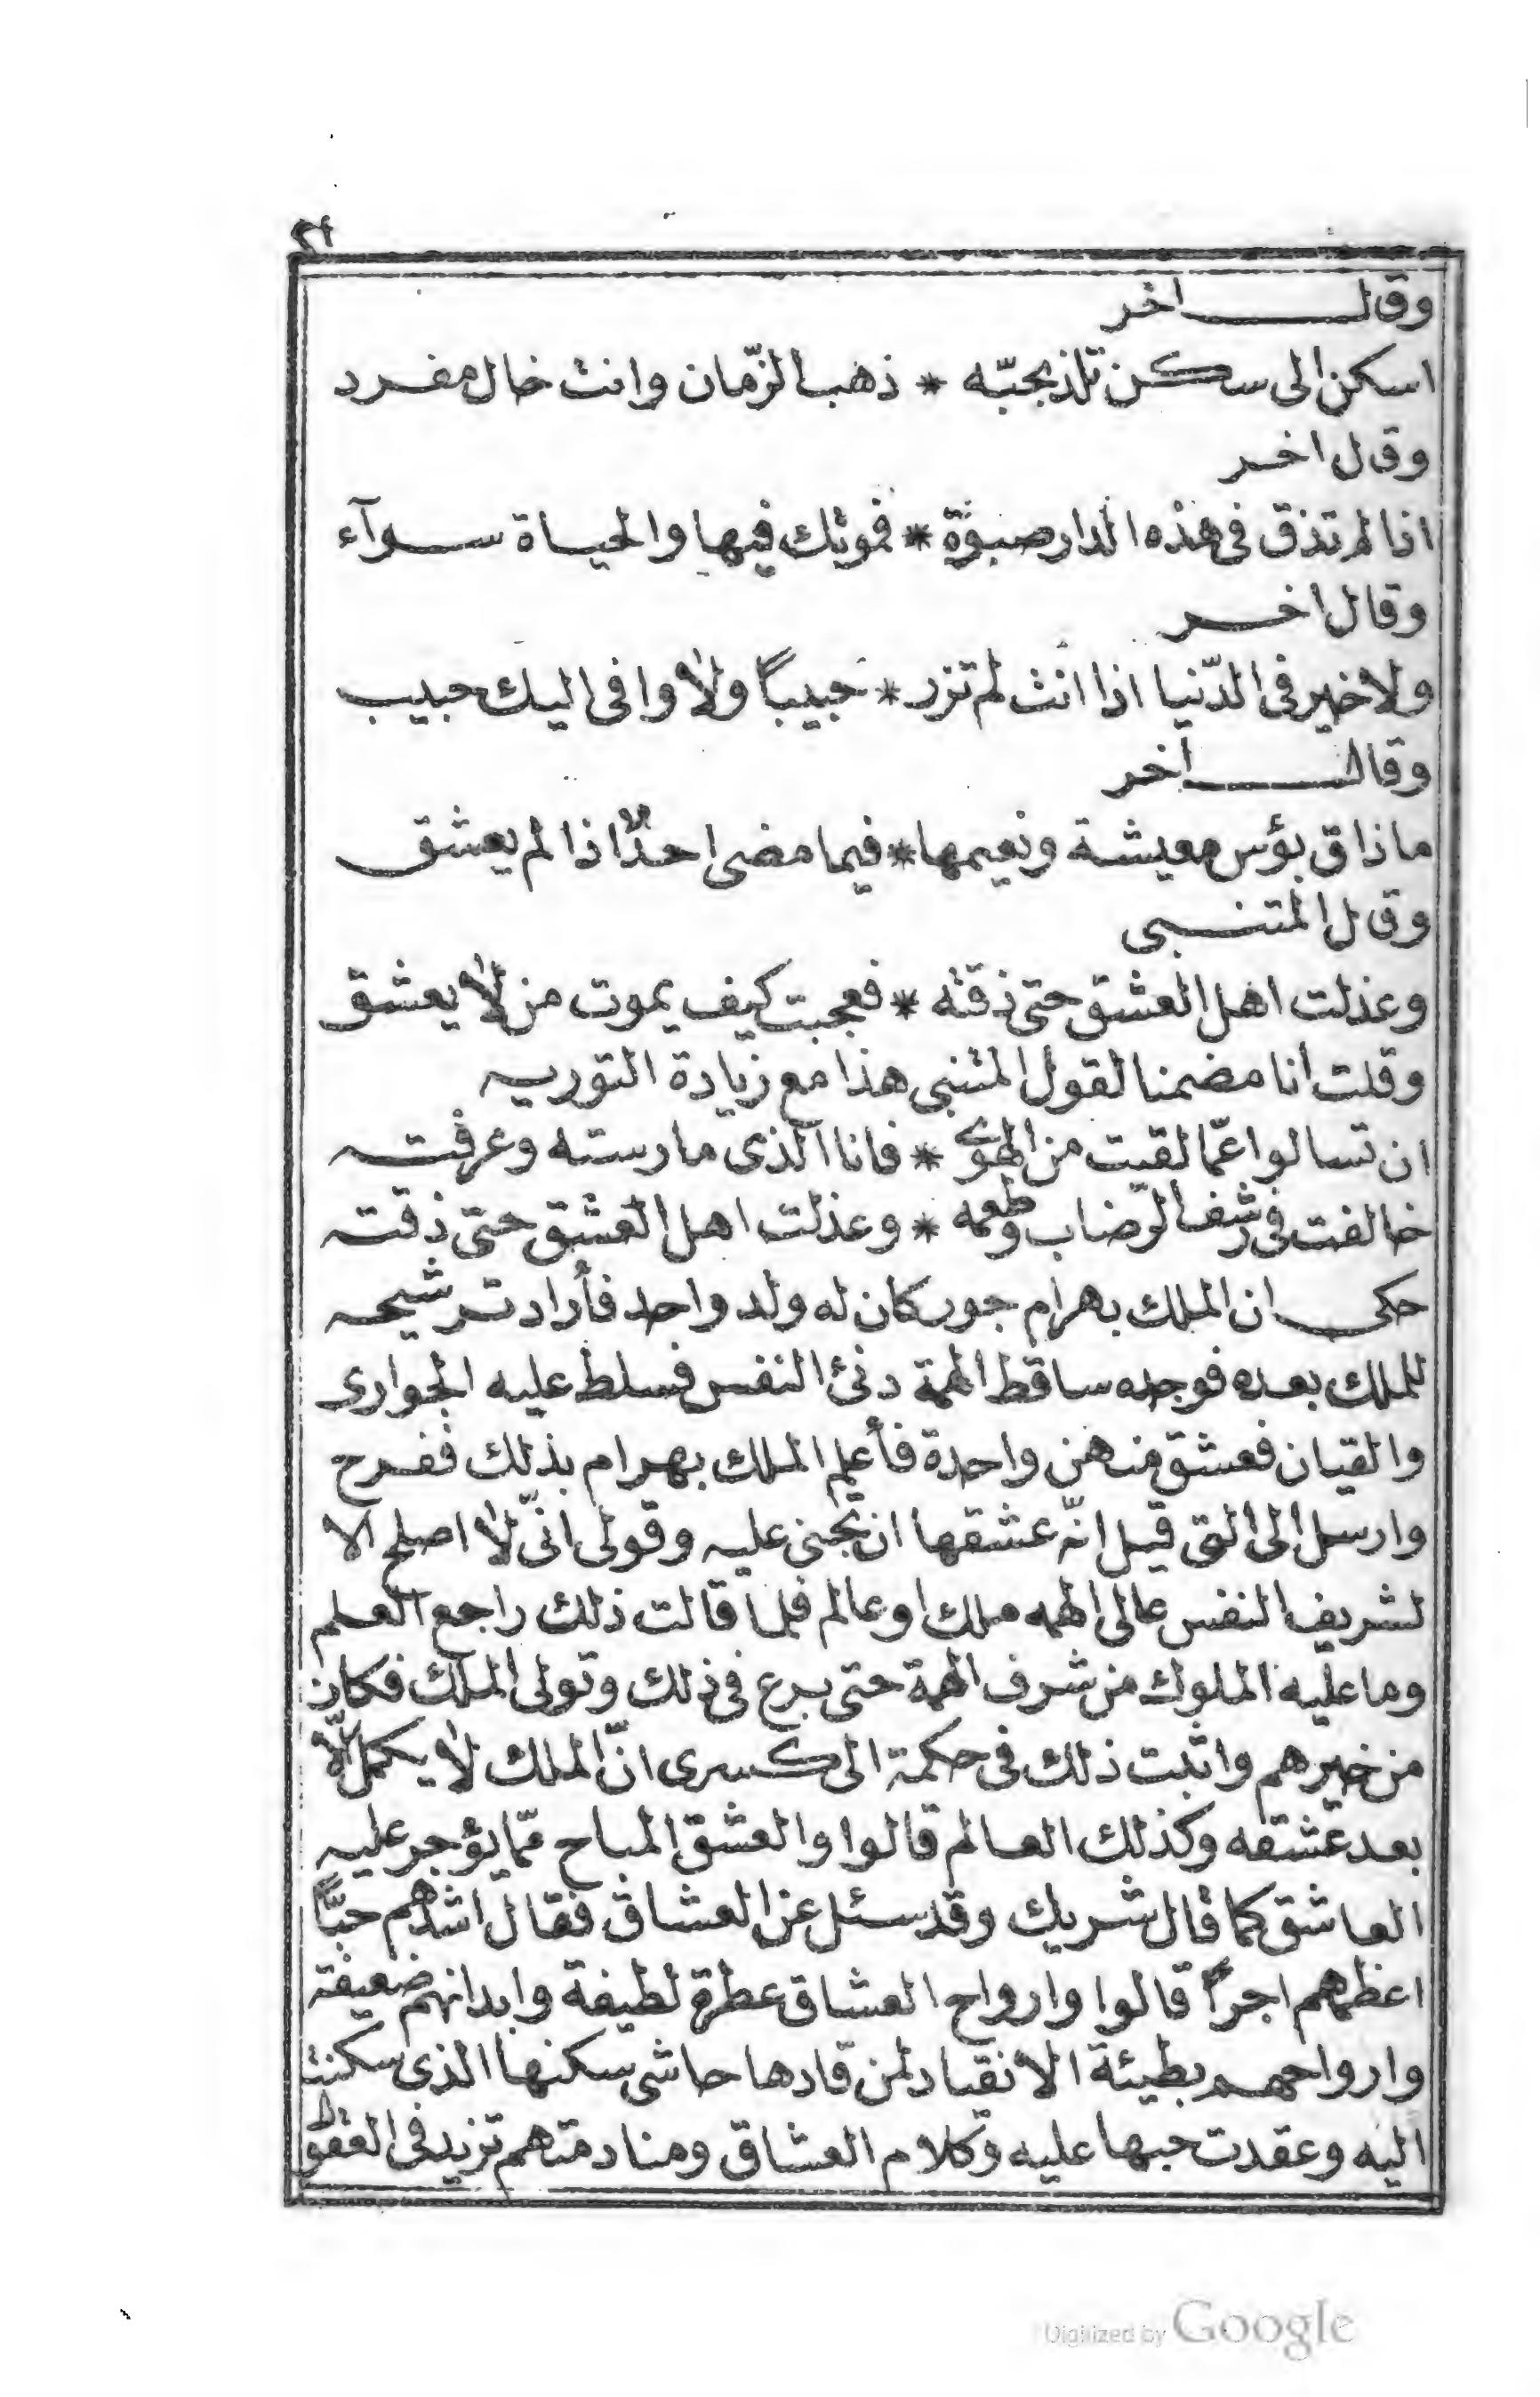 وقال اخر
اسكن الى سكن تلذ بحبّه * ذهب الزّمان وانت خال مفرد
وقال اخر
اذا لم تذق فى هذه الدار صبوة * فموتك فيها والحياة سوآء
وقال اخر
ولا خير فى الدّنيا اذا انت لم تزر * حبيباً ولا وافى اليك حبيب
وقال اخر
ما ذاق بؤس معيشة ونعيمها * فيما مضى احدٌ اذا لم يعشق
وقال المتنبى
وعذلت اهل العشق حتى ذقته * فعجبت كيف يموت من لا يعشق
وقلت أنا مضمنا لقول المتنبى هذا مع زيادة التوريه
ان تسالوا عمّا لقيت من الهوى * فانا الذى مارسته وعرفته
خالفت فى رشف الرّضاب وطعمه * وعذلت اهل العشق حتى ذقته
حكى ان الملك بهرام جور كان له ولد واحد فأراد ترشيحه
للملك بعده فوجده ساقط الهمة دنئ النفس فسلط عليه الجوارى
والقيان فعشق منهن واحدة فأعلم الملك بهرام بذلك ففرح
وارسل الى التى قيل انّه عشقها ان تجنى عليه وقولى انّى لا اصلح الا
لشريف النفس عالى الهمه ملك او عالم فلما قالت ذلك راجع العلم
وما عليه الملوك من شرف الهمة حتى برع فى ذلك وتولى الملك فكان
من خيرهم واثبت ذلك فى حكمة الى كسرى انّ الملك لا يكمل الّا
بعد عشقه وكذلك العالم قالوا والعشق المباح ممّا يؤجر عليه
العاشق كما قال شريك وقد سئل عن العشاق فقال اشدهم حبّاً
اعظمهم اجراً قالوا وارواح العشاق عطرة لطيفة وابدانهم ضعيفة
وارواحهم بطيئة الانقياد لمن قادها حاشى سكنها الذى سكنت
اليه وعقدت حبها عليه وكلام العشاق ومنادمتهم تزيد فى العقول
Digitized by Google